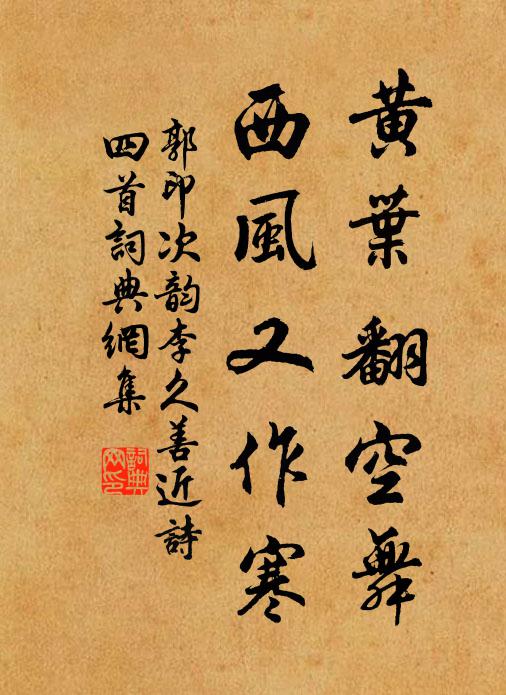 黄葉翻空舞
西風又作寒
郭印次韵李久善近詩
四首詞典網集
詞典網印